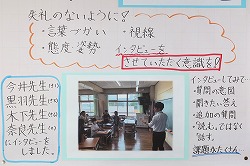 失礼のないように!
・言葉づかい ・視線
・態度姿勢
インタビューを
させていただく意識を!
今井先生
黒羽先生
木下先生
奈良先生
にインタビューを
しました。
インタビューしてみて…
・質問の意図
・聞きたい答え
・追加の質問
・"話す。"ではなく
"話す。"
課題がたくさん。